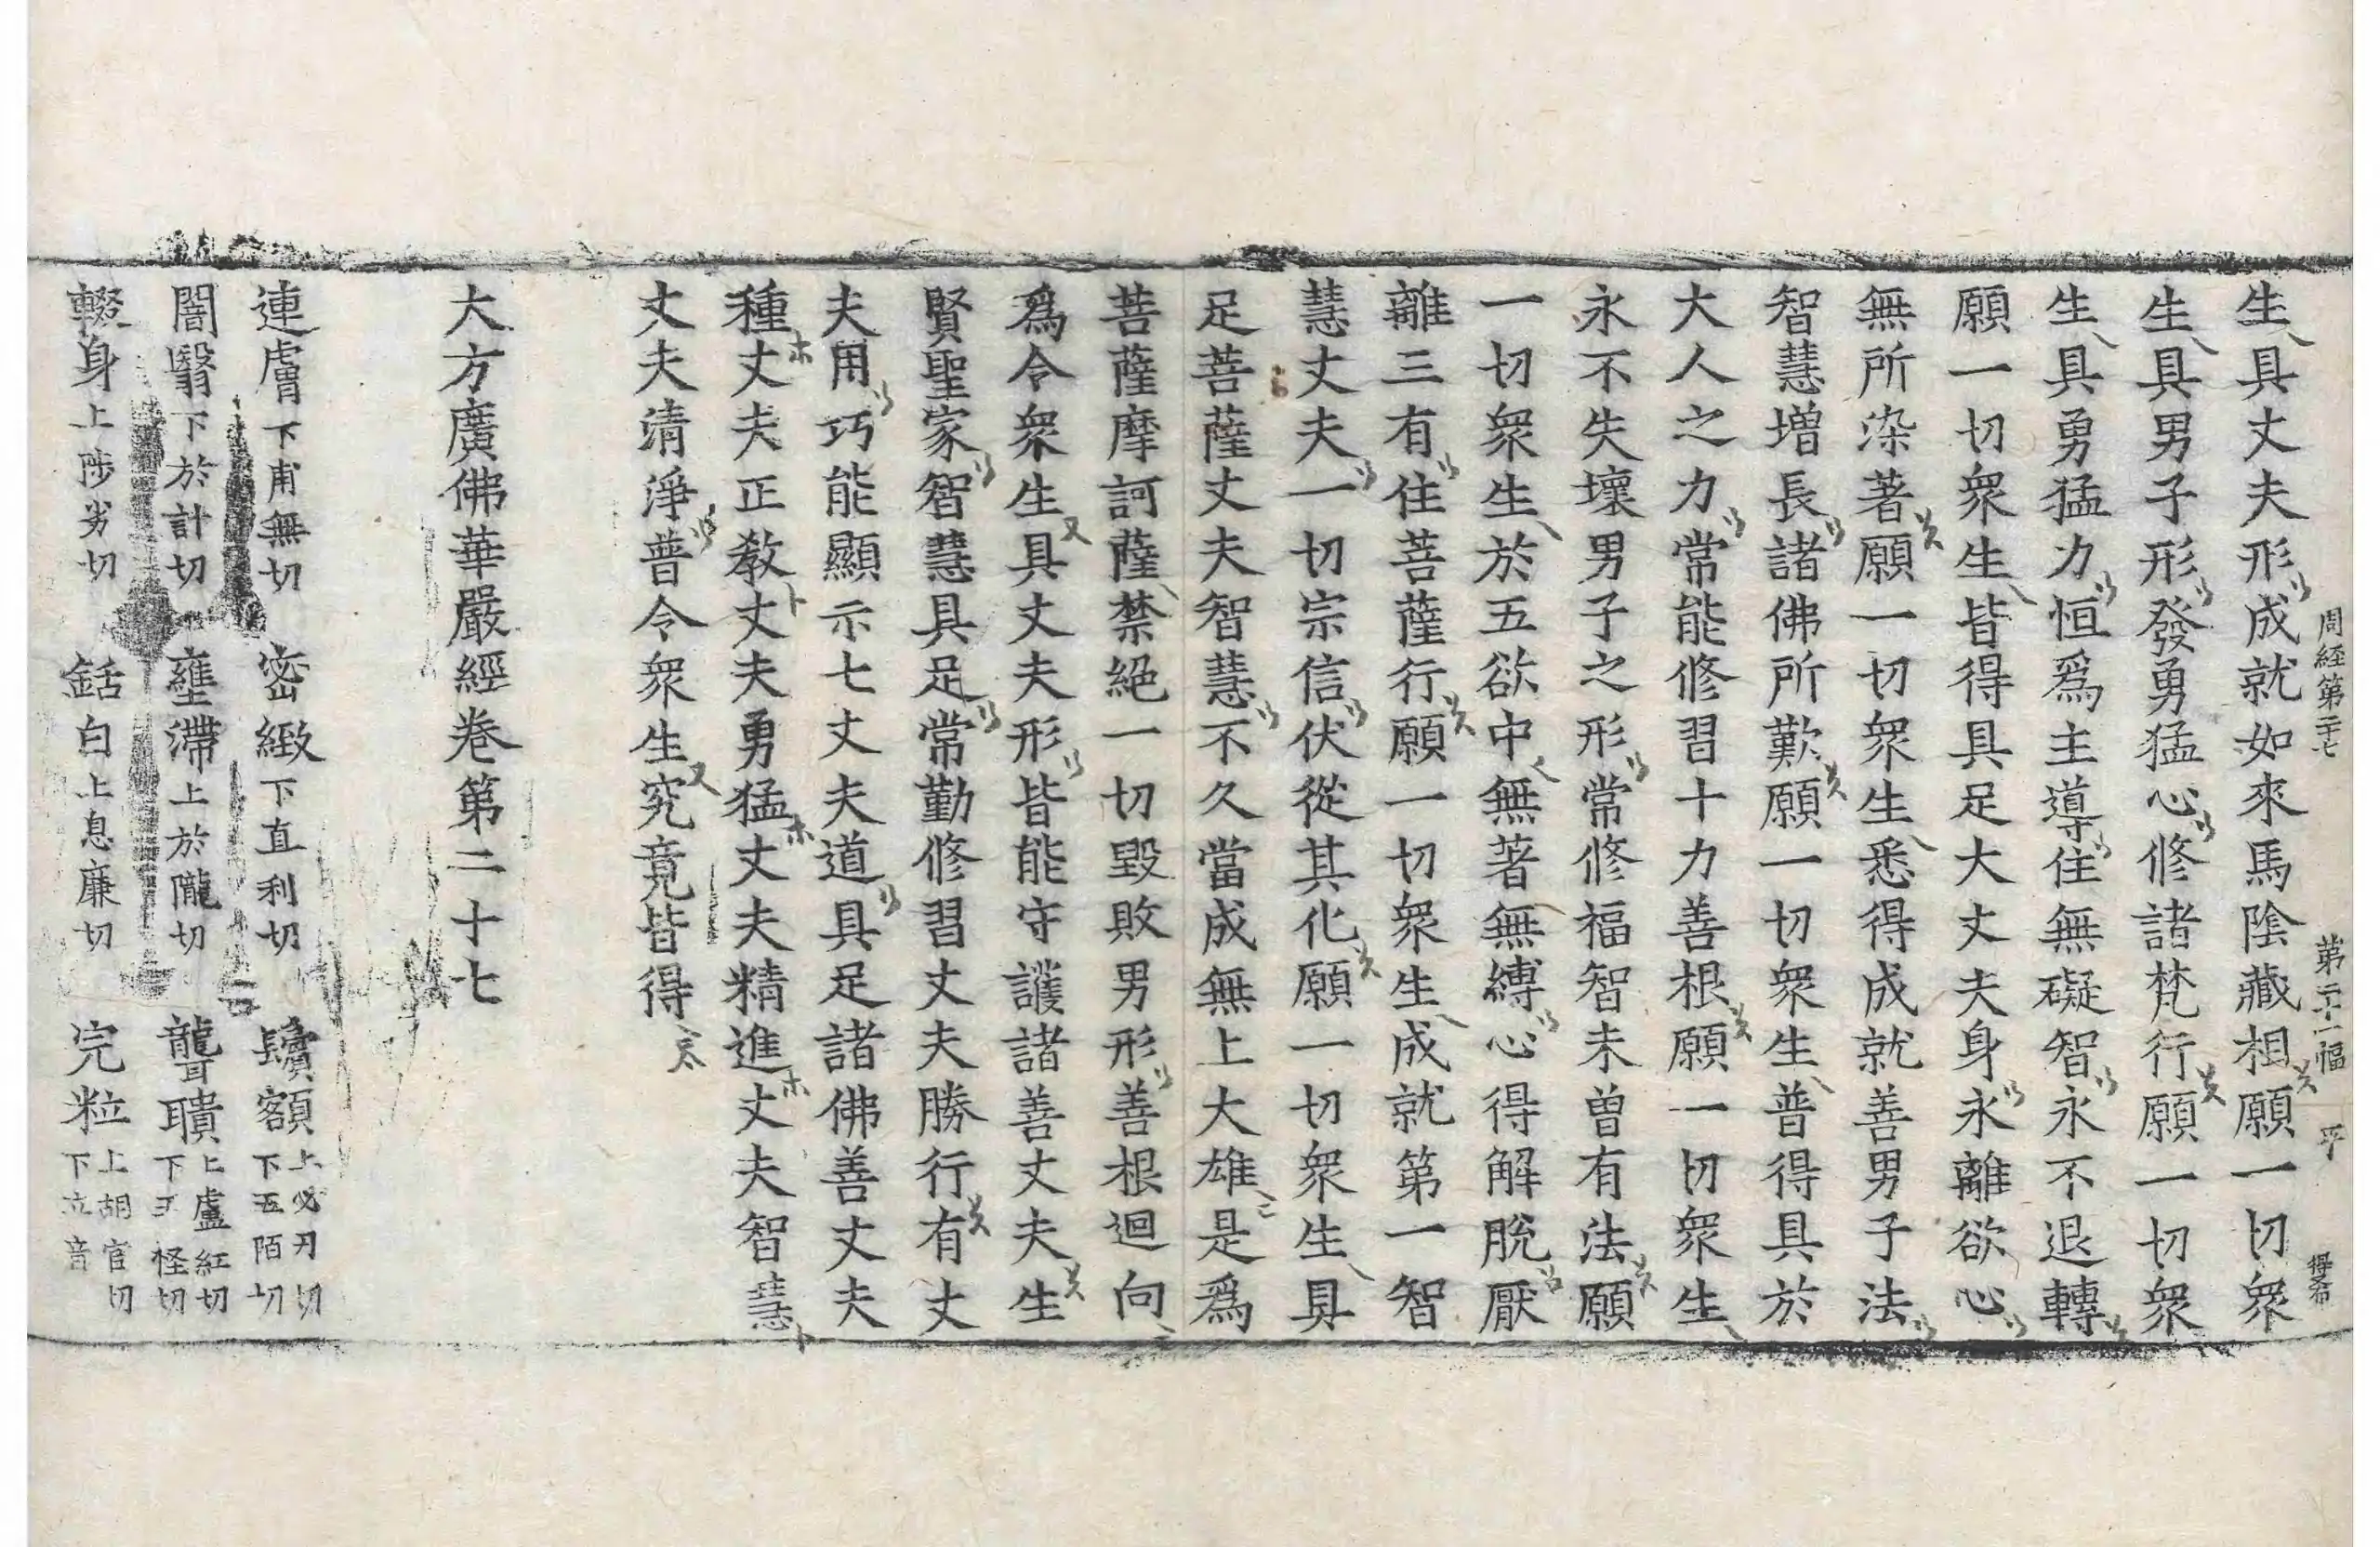 周經第二十七 第二十一幅 平 得希
生具丈夫形成就如來馬陰藏相願一切衆
生具男子形發勇猛心修諸梵行願一切衆
生具勇猛力恒爲主導住無礙智永不退轉
願一切衆生皆得具足大丈夫身永離欲心
無所染著願一切衆生悉得成就善男子法
智慧增長諸佛所歎願一切衆生普得具於
大人之力常能修習十力善根願一切衆生
永不失壞男子之形常修福智未曾有法願
一切衆生於五欲中無著無縛心得解脫厭
離三有住菩薩行願一切衆生成就第一智
慧丈夫一切宗信伏從其化願一切衆生具
足菩薩丈夫智慧不久當成無上大雄是爲
菩薩摩訶薩禁絕一切毀敗男形善根迴向
爲令衆生具丈夫形皆能守護諸善丈夫生
賢聖家智慧具足常勤修習丈夫勝行有丈
夫用巧能顯示七丈夫道具足諸佛善丈夫
種丈夫正教丈夫勇猛丈夫精進丈夫智慧
丈夫清淨普令衆生究竟皆得
大方廣佛華嚴經卷第二十七
連膚下甫無切 密緻下直利切 鬢額上必刃切下五陌切
闇翳下於計切 壅滯上於隴切 聾聵上盧紅切下五怪切
輟身上陟劣切 銛白上息廉切 完粒上胡官切下立音